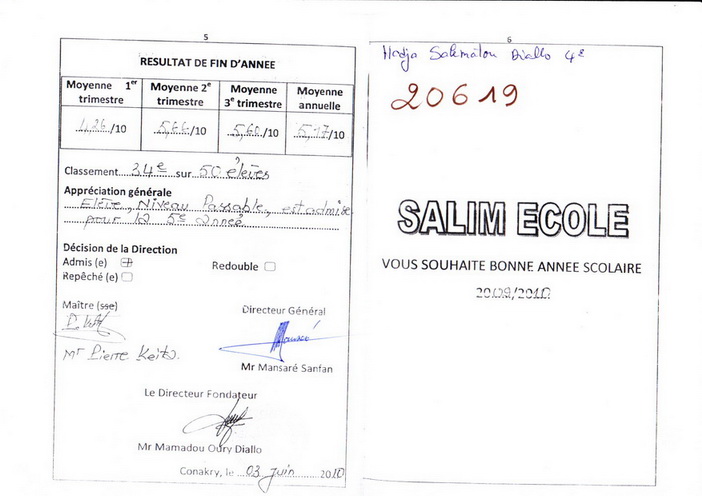 5
RESULTAT DE FIN D'ANNEE
Moyenne 1er trimestre Moyenne 2e trimestre Moyenne 3e trimestre Moyenne annuelle
4,26/10 5,66/10 5,60/10 5,17/10
Classement 34e sur 50 élèves
Appréciation générale
Elève, Niveau Passable, est admise
pour la 5e année
Décision de la Direction
Admis (e)
Redouble
Repêché (e)
Maître (sse)
Directeur Général
Mr Pierre Keita
Mr Mansaré Sanfan
Le Directeur Fondateur
Mr Mamadou Oury Diallo
Conakry, le 03 Juin 2010
6
Hadja Salematou Diallo 4e
20619
SALIM ECOLE
VOUS SOUHAITE BONNE ANNEE SCOLAIRE
2009/2010